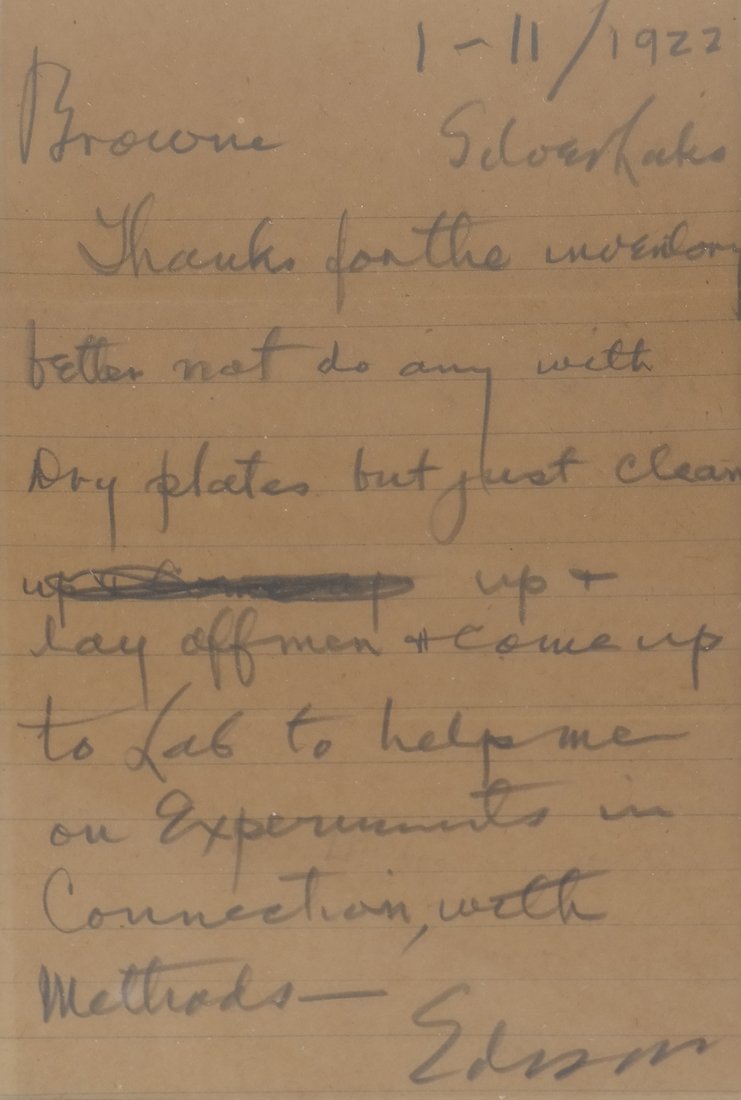 1-11/1922
Browne Silver Lake
Thanks for the inventory
better not do any with
Dry plates but just clean
up up +
lay off men + come up
to Lab to help me
on Experiments in
Connection, with
Methods—
Edison